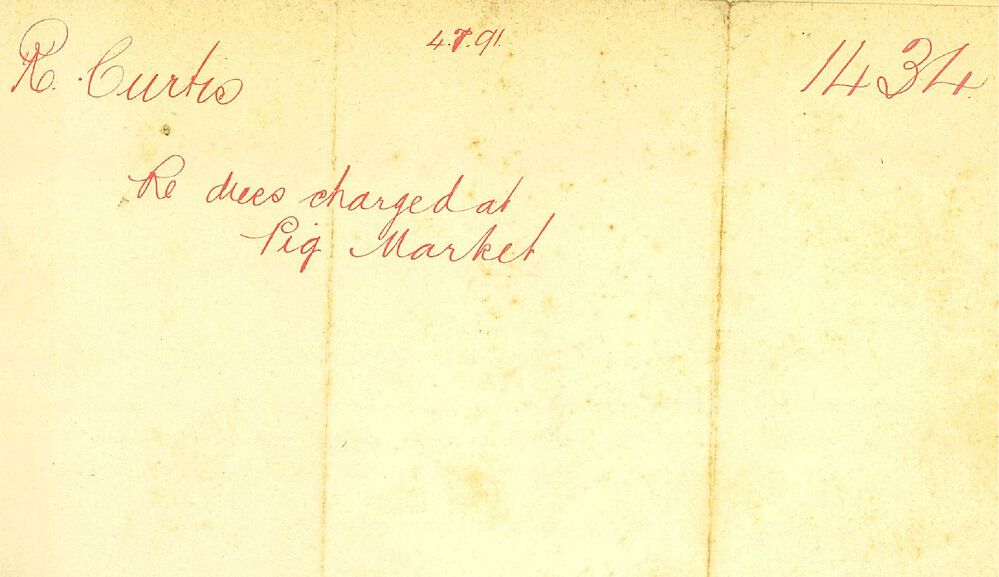 R. Curtis
4.7.91.
1434
Re dues charged at
Pig Market